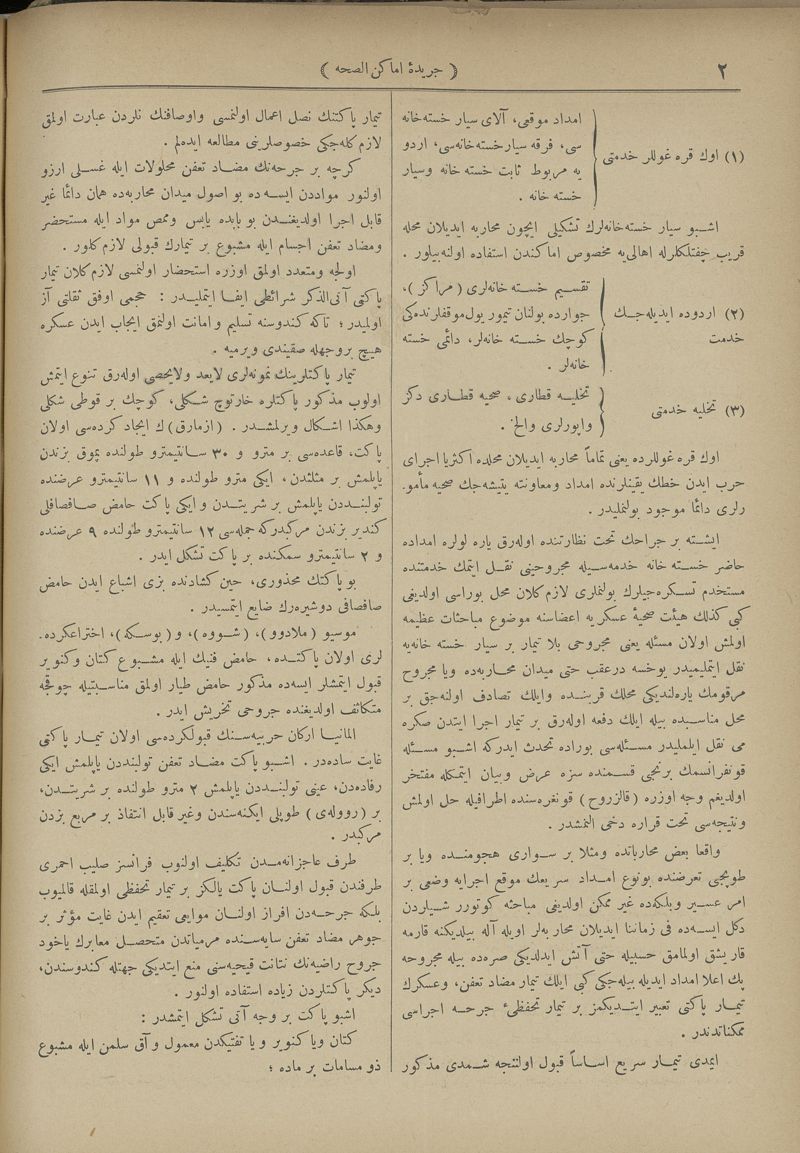 ٢
﴿ جريدهٔ اماكن الصحه ﴾
(١) اوك قره غوللر خدمتى
امداد موقعى، آلاى سيار خسته‌خانه
سى، فرقه سيار خسته‌خانه‌سى، اردو
يه مربوط ثابت خسته خانه وسيار
خسته خانه .
اشبو سيار خسته‌خانه‌لرك تشكيلى ايچون محاربه ايديلان محله
قريب چفتلكلرله اهالى‌يه مخصوص اماكندن استفاده اولنه‌بيلور .
(٢) اردوده ايديله‌جك
خدمت
تقسيم خسته خانه‌لرى ( مراكز )،
جوارده بولنان تيمور يول موقفلرنده‌كى
كوچك خسته خانه‌لر، دائمى خسته
خانه‌لر .
(٣) تخليه خدمتى
تخليه قطارى ، صحيه قطارى دكز
واپورلرى والخ .
اوك قره غوللرده يعنى تماماً محاربه ايديلان محلده اكثريا اجراى
حرب ايدن خطك يقينلرنده امداد ومعاونته يتيشه‌جك صحيه مأمو.
رلرى دائما موجود بولنمليدر .
ايشته بر جراحك تحت نظارتنده اوله‌رق ياره لولره امداده
حاضر خسته خانه خدمه‌سيله مجروحينى نقل ايتمك خدمتنده
مستخدم تسكره‌جيلرك بولنملرى لازم كلان محل بوراسى اولديغى
كبى كذلك هيئت صحيهٔ عسكريه اعضاسنه موضوع مباحثات عظيمه
اولمش اولان مسئله يعنى مجروحى بلا تيمار بر سيار خسته خانه‌يه
نقل ايتمليميدر يوخسه درعقب حتى ميدان محاربه‌ده ويا مجروح
مرقومك ياره‌لنديكى محلك قربنده وايلك تصادف اولنه‌جق بر
محل مناسبده بيله ايلك دفعه اوله‌رق بر تيمار اجرا ايتدن صكره
مى نقل ايلمليدر مسئله‌سى بوراده تحدث ايدركه اشبو مسئله
قونفرانسمك برنجى قسمنده سزه عرض وبيان ايتمكله مفتخر
اولديغم وجه اوزره (قالزروح) قونغره‌سنده اطرافيله حل اولمش
ونتيجه‌سى تحت قراره دخى النمشدر .
واقعا بعض محارباتده ومثلا بر سوارى هجومنده ويا بر
طوپجى تعرضنده بونوع امداد سريعك موقع اجرايه وضعى بر
امر عسير وبلكه‌ده غير ممكن اولديغى مباحثه كوتورر شيلردن
دكل ايسه‌ده فى زماننا ايديلان محاربه‌لر اويله آله بيلديكنه قارمه
قاريشق اولمامق حسبيله حتى آتش ايدلديكى صره‌ده بيله مجروحه
پك اعلا امداد ايديله بيله‌جكى كبى ايلك تيمار مضاد تعفن، وعسكرك
تيمار پاكتى تعبير ايتديكمز بر تيمار تحفظىٔ جرحه اجراسى
ممكناتدندر .
ايمدى تيمار سريع اساساً قبول اولننجه شمدى مذكور
تيمار پاكتنك نصل اعمال اولنمسى واوصافنك نلردن عبارت اولمق
لازم كله‌جكى خصوصلرينى مطالعه ايده‌لم .
كرچه بر جرحه‌نك مضاد تعفن محلولات ايله غسلى ارزو
اولنور موادندن ايسه‌ده بو اصول ميدان محاربه‌ده همان دائما غير
قابل اجرا اولديغندن بو بابده يابس وممص مواد ايله مستحضر
ومضاد تعفن اجسام ايله مشبوع بر تيمارك قبولى لازم كلور .
اولجه ومتعدد اولمق اوزره استحضار اولنمسى لازم كلان تيمار
پاكتى آتى‌الذكر شرائطى ايفا ايتمليدر : حجمى اوفق ثقلتى آز
اولمليدر ؛ تاكه كندوسنه تسليم و امانت اولنمق ايجاب ايدن عسكره
هيچ بر وجهله صقيندى ويرميه .
تيمار پاكتلرينك نمونه‌لرى لايعد ولايحصى اوله‌رق تنوع ايتمش
اولوب مذكور پاكتلره خارتوج شكلى، كوچك بر قوطى شكلى
وهكذا اشكال ويرلمشدر . ( ازمارق ) ك ايجاد كرده‌سى اولان
پاكت، قاعده‌سى بر مترو و ٣٠ سانتيمترو طولنده پموق بزندن
ياپلمش بر مثلثدن، ايكى مترو طولنده و ١١ سانتيمترو عرضنده
تولبنددن ياپلمش بر شريتدن و ايكى پاكت حامض صافصافلى
كندير بزندن مركبدركه جمله‌سى ١٢ سانتيمترو طولنده ٩ عرضنده
و ٢ سانتيمترو سمكنده بر پاكت تشكل ايدر .
بو پاكتك محذورى، حين كشادنده بزى اشباع ايدن حامض
صافصافى دوشيره‌رك ضايع ايتمسيدر .
موسيو ( ملادوو )، ( شووه )، و ( بوسكه )، اختراعكرده.
لرى اولان پاكتده، حامض فنيك ايله مشبوع كتان وكنوير
قبول ايتمشلر ايسه‌ده مذكور حامض طيار اولمق مناسبتيله چوقجه
متكاثف اولديغنده جروحى تخريش ايدر .
المانيا اركان حربيه‌سنك قبولكرده‌سى اولان تيمار پاكتى
غايت ساده‌در . اشبو پاكت مضاد تعفن تولبندن ياپلمش ايكى
رفاده‌دن، عينى تولبنددن ياپلمش ٢ مترو طولنده بر شريتدن،
بر ( رووله‌ى ) طوپلى ايكنه‌سندن وغير قابل انتفاذ بر مربع بزدن
مركبدر .
طرف عاجزانه‌مدن تكليف اولنوب فرانسز صليب احمرى
طرفندن قبول اولنان پاكت يالكز بر تيمار تحفظى اولمقله قالميوب
بلكه جرحه‌دن افراز اولنان موايعى تعقيم ايدن غايت مؤثر بر
جوهر مضاد تعفن سايه‌سنده مرمياتدن متحصل معابرك ياخود
جروح راضيه‌نك نتانت قيحيه‌سى منع ايتديكى جهتله كندوسندن،
ديكر پاكتلردن زياده استفاده اولنور .
اشبو پاكت بر وجه آتى تشكل ايتمشدر :
كتان ويا كنوير و يا تفتيكدن معمول و آق سلمن ايله مشبوع
ذو مسامات بر ماده ؛